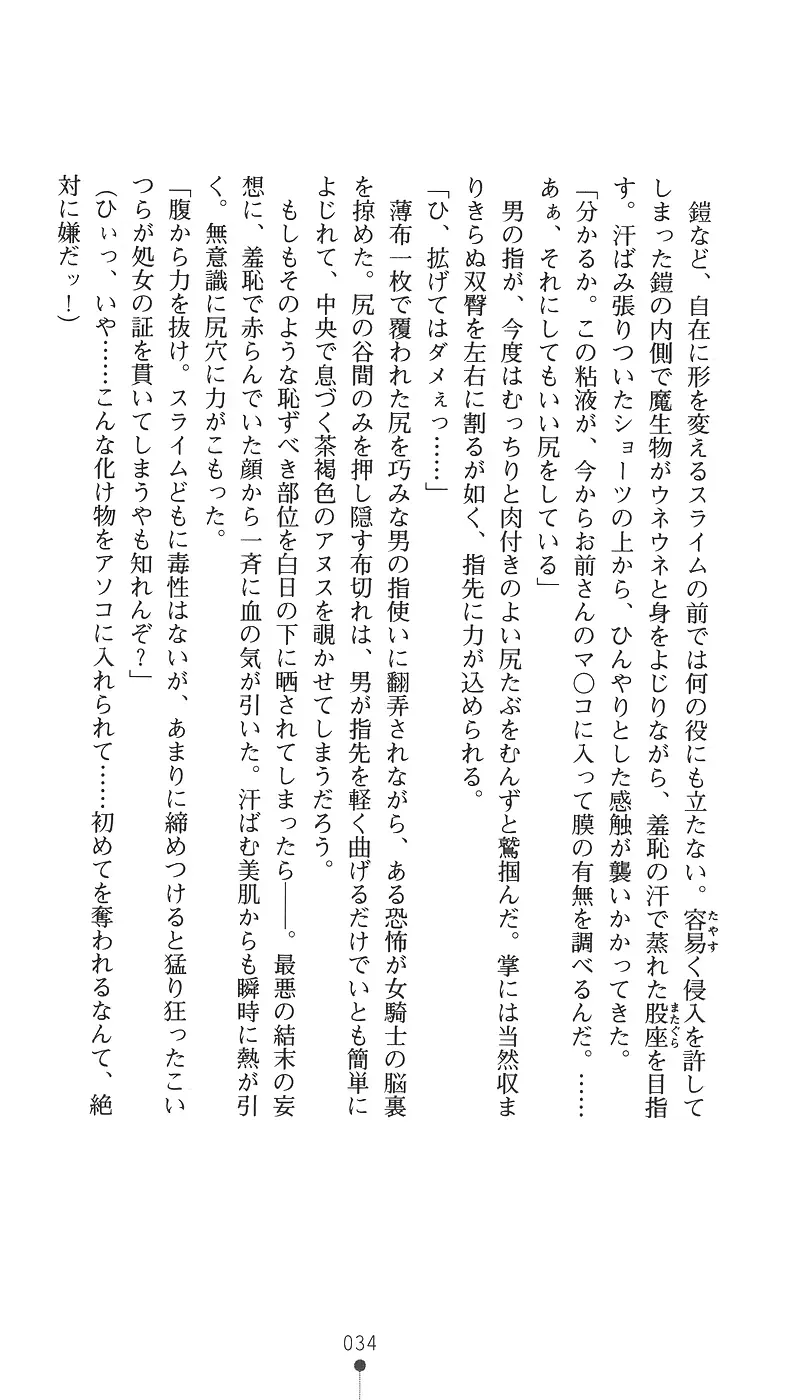 鎧など、自在に形を変えるスライムの前では何の役にも立たない。容易く侵入を許して
たやす
しまった鎧の内側で魔生物がウネウネと身をよじりながら、羞恥の汗で蒸れた股座を目指
またぐら
す。汗ばみ張りついたショーツの上から、ひんやりとした感触が襲いかかってきた。
「分かるか。この粘液が、今からお前さんのマ〇コに入って膜の有無を調べるんだ。……
あぁ、それにしてもいい尻をしている」
男の指が、今度はむっちりと肉付きのよい尻たぶをむんずと鷲掴んだ。掌には当然収ま
りきらぬ双臀を左右に割るが如く、指先に力が込められる。
「ひ、拡げてはダメぇっ……」
薄布一枚で覆われた尻を巧みな男の指使いに翻弄されながら、ある恐怖が女騎士の脳裏
を掠めた。尻の谷間のみを押し隠す布切れは、男が指先を軽く曲げるだけでいとも簡単に
よじれて、中央で息づく茶褐色のアヌスを覗かせてしまうだろう。
もしもそのような恥ずべき部位を白日の下に晒されてしまったら――。最悪の結末の妄
想に、羞恥で赤らんでいた顔から一斉に血の気が引いた。汗ばむ美肌からも瞬時に熱が引
く。無意識に尻穴に力がこもった。
「腹から力を抜け。スライムどもに毒性はないが、あまりに締めつけると猛り狂ったこい
つらが処女の証を貫いてしまうやも知れんぞ？」
（ひぃっ、いや……こんな化け物をアソコに入れられて……初めてを奪われるなんて、絶
対に嫌だッ！）
034